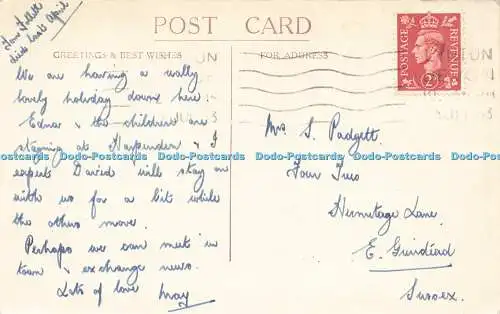 Tom Follett
died last April
POST CARD
GREETINGS & BEST WISHES
FOR ADDRESS
POSTAGE
REVENUE
2D
We are having a really
lovely holiday down here.
Edna & the children are
staying at Harpenden & I
expect David will stay on
with us for a bit while
the others move.
Perhaps we can meet in
town & exchange news.
Lots of love May
Mrs S. Padgett
Four Trees
Hermitage Lane,
E. Grinstead
Sussex.
Dodo-Postcards Dodo-Postcards Dodo-Postcards Dodo-Postcards Dodo-Postcards Dodo-Postcards